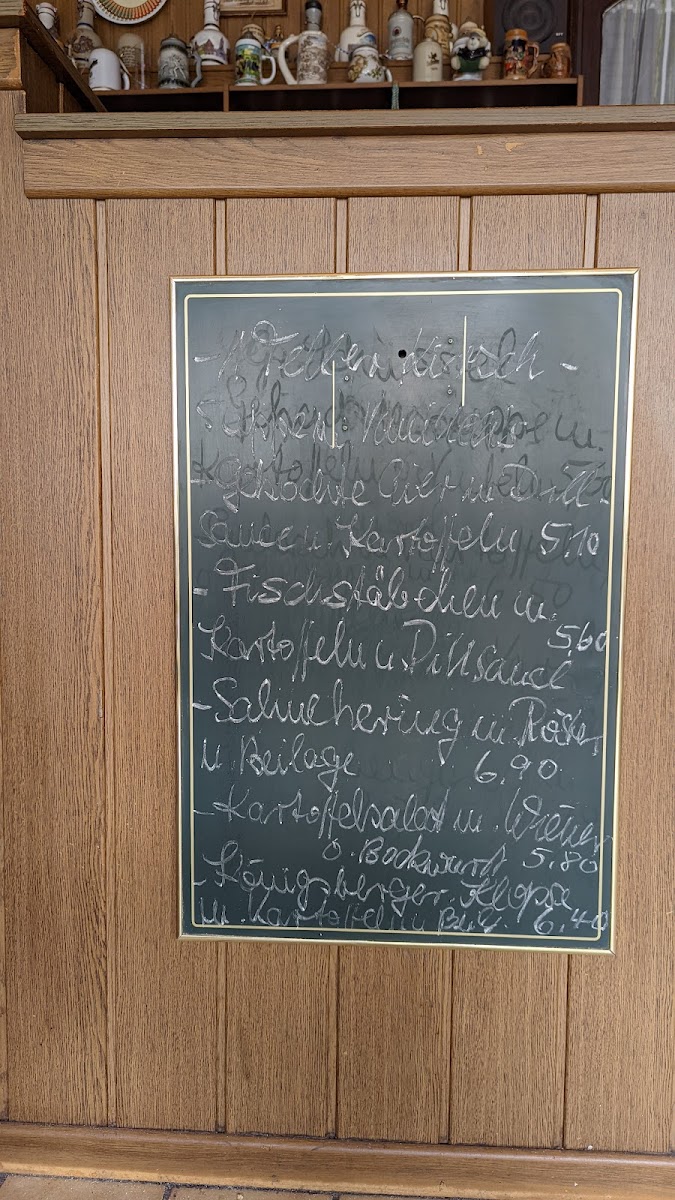 - Gekochte Eier m. Dill-
Sauce u. Kartoffeln 5,10
- Fischstäbchen m.
Kartoffeln u. Dillsauce 5,60
- Sahnehering m. Röster
u. Beilage 6,90
- Kartoffelsalat m. Wiener
o. Bockwurst 5,80
- Königsberger Klopse
m. Kartoffeln u. Beil. 6,40